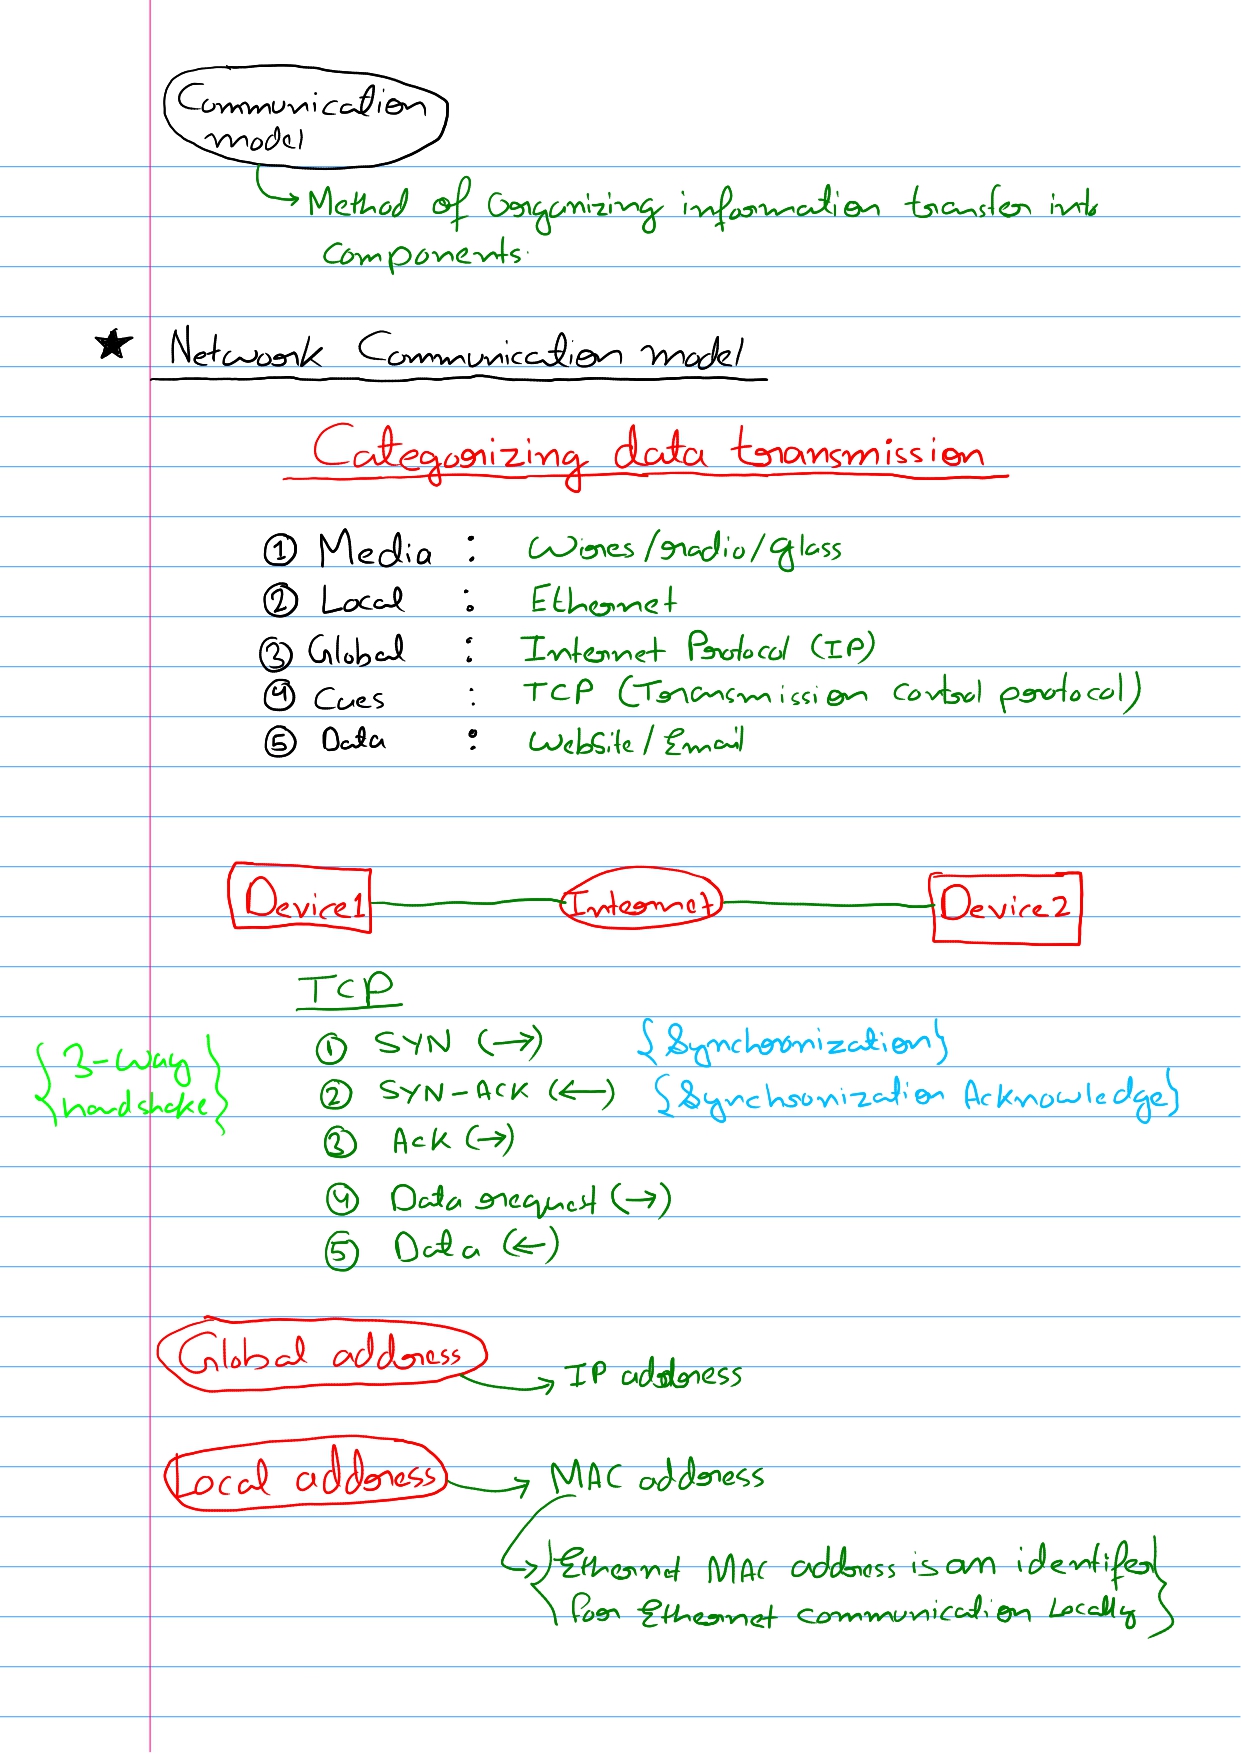 Communication
model
→ Method of organizing information transfer into
components.
★ Network Communication model
Categorizing data transmission
① Media : Wires/radio/glass
② Local : Ethernet
③ Global : Internet Protocol (IP)
④ Cues : TCP (Transmission control protocol)
⑤ Data : Website/Email
Device1 Internet Device2
TCP
{3-way
handshake}
① SYN (→) {Synchronization}
② SYN-ACK (←) {Synchronization Acknowledge}
③ Ack (→)
④ Data request (→)
⑤ Data (←)
Global address → IP address
Local address → MAC address
→ {Ethernet MAC address is an identifer
for Ethernet communication Locally}